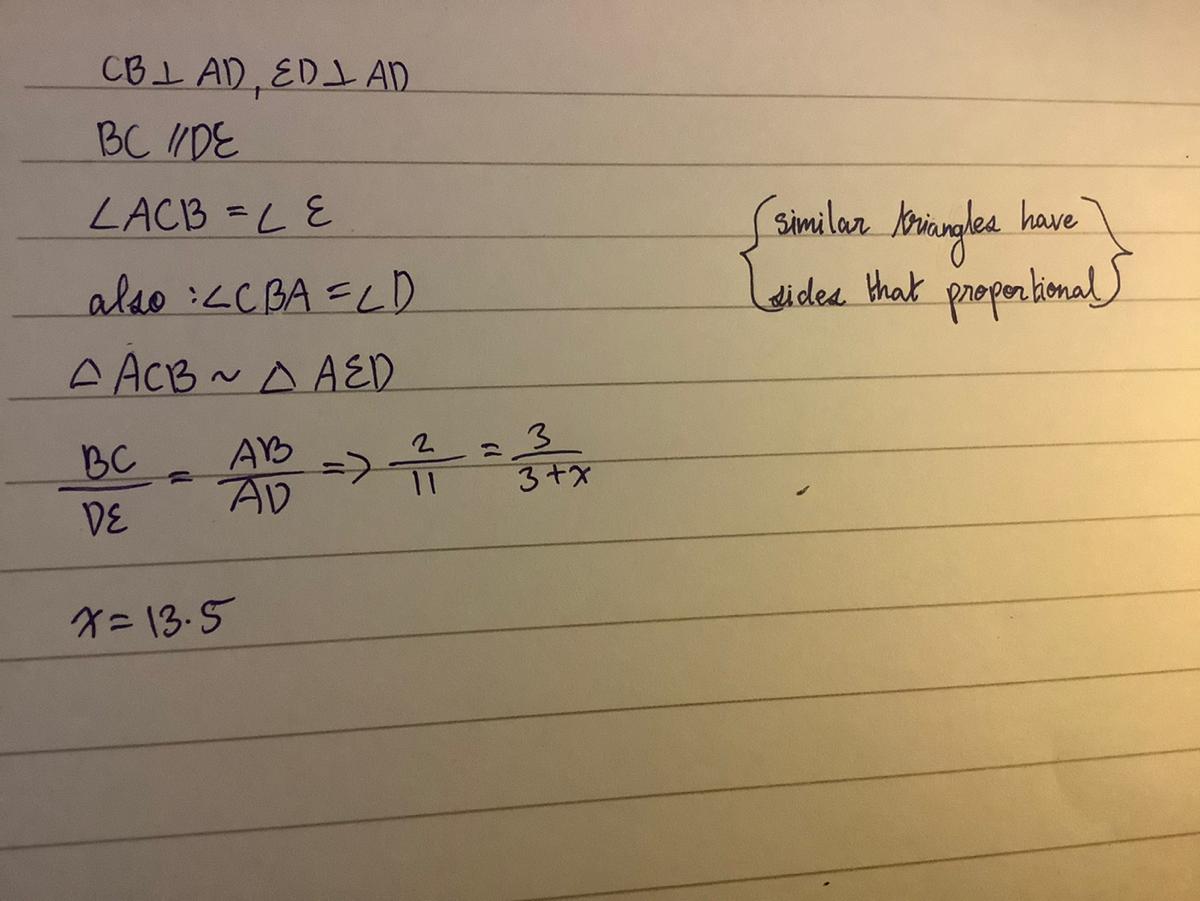 CB⊥AD, ED⊥AD
BC//DE
∠ACB=∠E
also :∠CBA=∠D
△ACB~△AED
BC/DE = AB/AD => 2/11 = 3/3+x
x=13.5
{similar triangles have
sides that proportional}